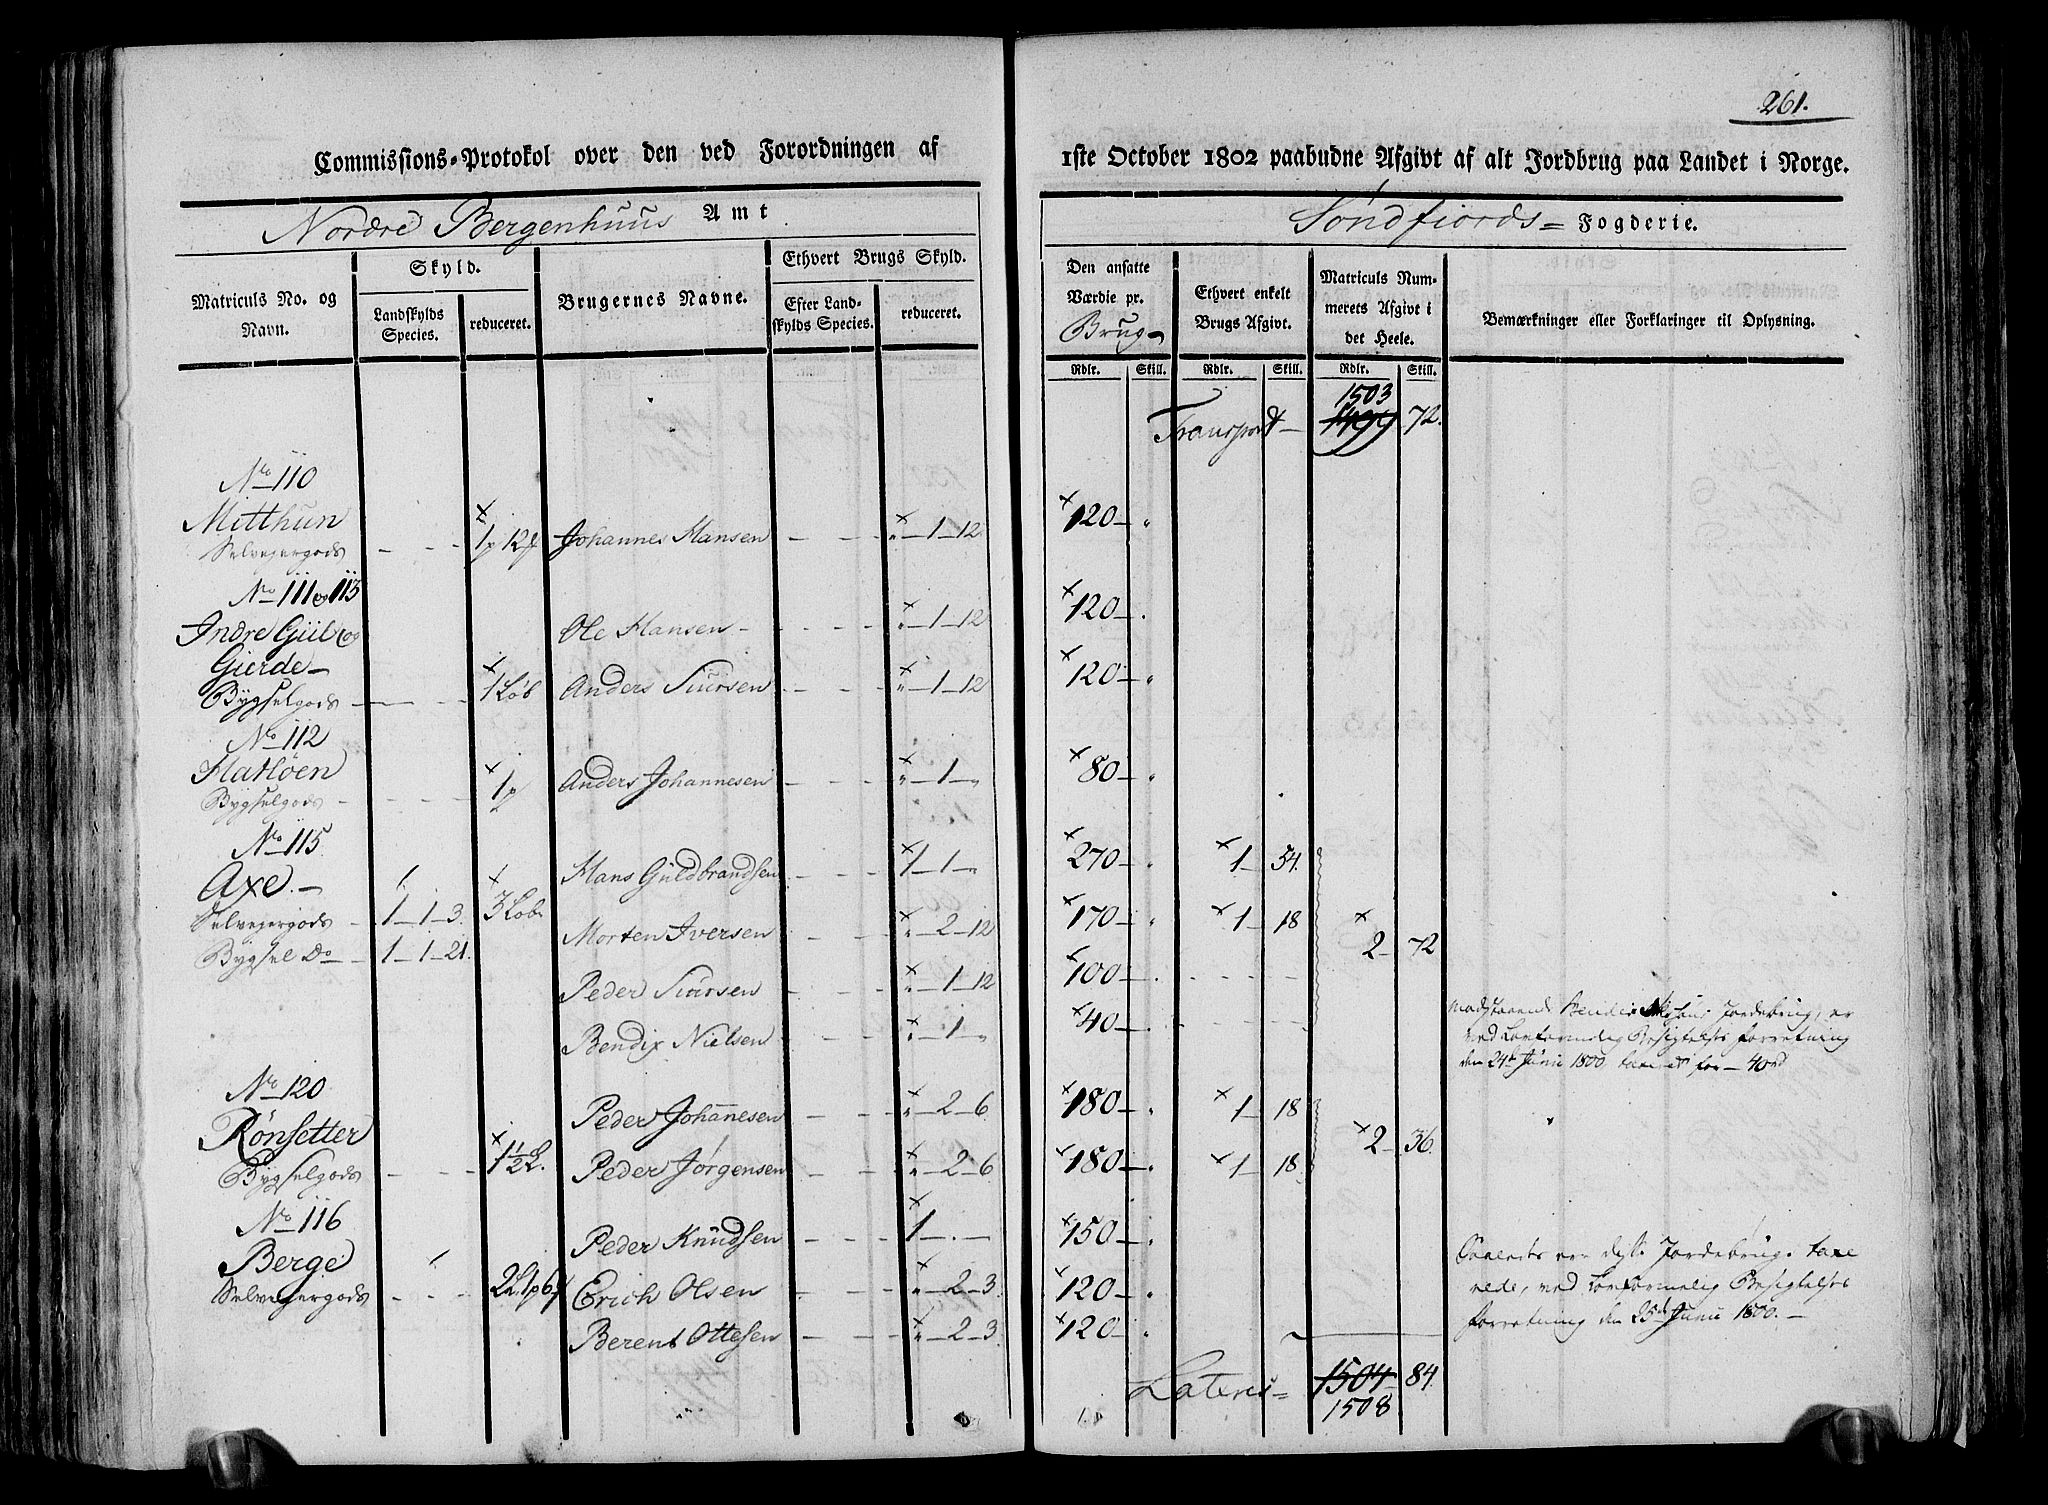 261.
Commissions=Protokol over den ved Forordningen af 1ste October 1802 paabudne Afgivt af alt Jordbrug paa Landet i Norge.
Nordre Bergenhuus Amt Søndfiords= Fogderie.
Matriculs No. og Navn. Skyld. Landskylds Species. reduceret. Brugernes Navne. Ethvert Brugs Skyld. Efter Landskylds Species. reduceret. Den ansatte Værdie pr. Brug Ethvert enkelt Brugs Afgivt. Matriculs Nummerets Afgivt i det Heele. Bemærkninger eller Forklaringer til Oplysning.
Rdlr. Skill. Rdlr. Skill. Rdlr. Skill.
1503
Transport — 1499 72.
No 110
Mitthun
Selvejergods — 1 p 12 Johannes Hansen — " — 1 — 12 120 — "
No 111 og 113
Indre Giil og Ole Hansen — " — 1 — 12 120 — "
Gierde —
Bygselgods — 1 Løb Anders Siursen — " — 1 — 12 120 — "
No 112
Hatløen
Bygselgods — 1 p Anders Johannesen — " — 1 — " 80 — "
No 115
Axe. — 3 Løb Hans Guldbrandsen — 1 — 1 — " 270 — " 1 — 54.
Selvejergods — 1 — 1 — 3. Morten Iversen — " — 2 — 12 170 — " 1 — 18 2 — 72
Bygsel Do — 1 — 1 — 21. Peder Siursen — " — 1 — 12 100 — "
Bendix Nielsen — " — 1 — " 40 — "
Bendix Jordebrug, er
ved lovformelig Besigtelses forretning
den 24de Junii 1800 taxeret for — 40 rd
No 120
Rønsetter Peder Johannesen — " — 2 — 6 180 — " 1 — 18 2 — 36.
Bygselgods — 1½ L. Peder Jørgensen — " — 2 — 6 180 — " 1 — 18
No 116
Berge Peder Knudsen — 1 — . — 150 — "
Selvejergods — 2 L 1 p 6 Erich Olsen — " — 2 — 3. 120 — "
Berent Ottesen — " — 2 — 3. 120 — "
ere Jordebrug taxe
rede, ved lovformelig Besigtelses
forretning den 25de Junii 1800. —
Lateris = 1504 84.
1508